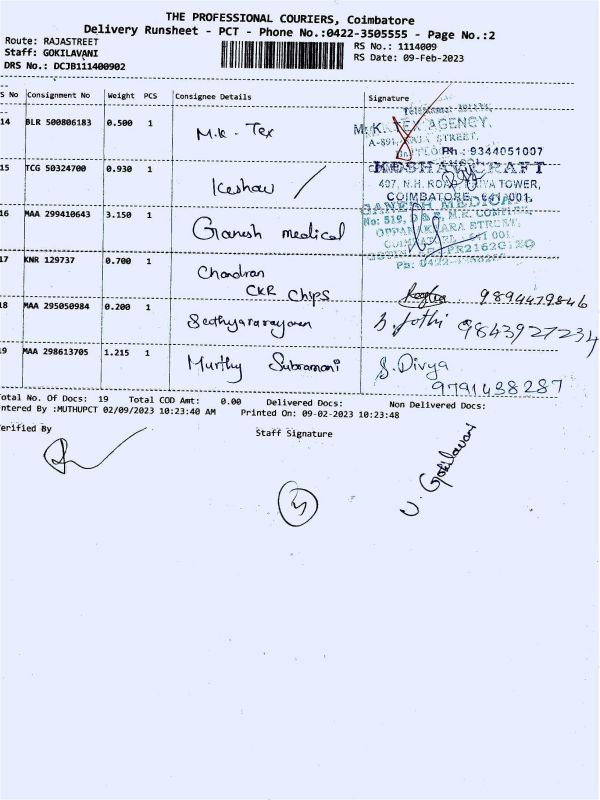 THE PROFESSIONAL COURIERS, Coimbatore
Delivery Runsheet - PCT - Phone No.:0422-3505555 - Page No.:2
Route: RAJASTREET
Staff: GOKILAVANI
DRS No.: DCJB111400902
RS No.: 1114009
RS Date: 09-Feb-2023
S No Consignment No Weight PCS Consignee Details Signature
14 BLR 500806183 0.500 1 M.K - Tex
M.K. TEX AGENCY,
STREET,
Ph.: 9344051007
15 TCG 50324700 0.930 1 Keshav
KESHAV CRAFT
407, N.H. ROAD TOWER,
COIMBATORE - 641 001.
16 MAA 299410643 3.150 1 Ganesh medical
GANESH MEDICAL
No: 519, D & S, M.K. COMPLEX
OPPANAKKARA STREET,
641 001.
17 KNR 129737 0.700 1 Chandran
CKR Chips
9894479846
18 MAA 295050984 0.200 1 Sathyanarayanan
S. Jothi 9843927234
19 MAA 298613705 1.215 1 Murthy Subramani
S. Divya
9791438287
Total No. Of Docs: 19 Total COD Amt: 0.00 Delivered Docs: Non Delivered Docs:
Entered By :MUTHUPCT 02/09/2023 10:23:40 AM Printed On: 09-02-2023 10:23:48
Verified By
Staff Signature
U. Gokilavani